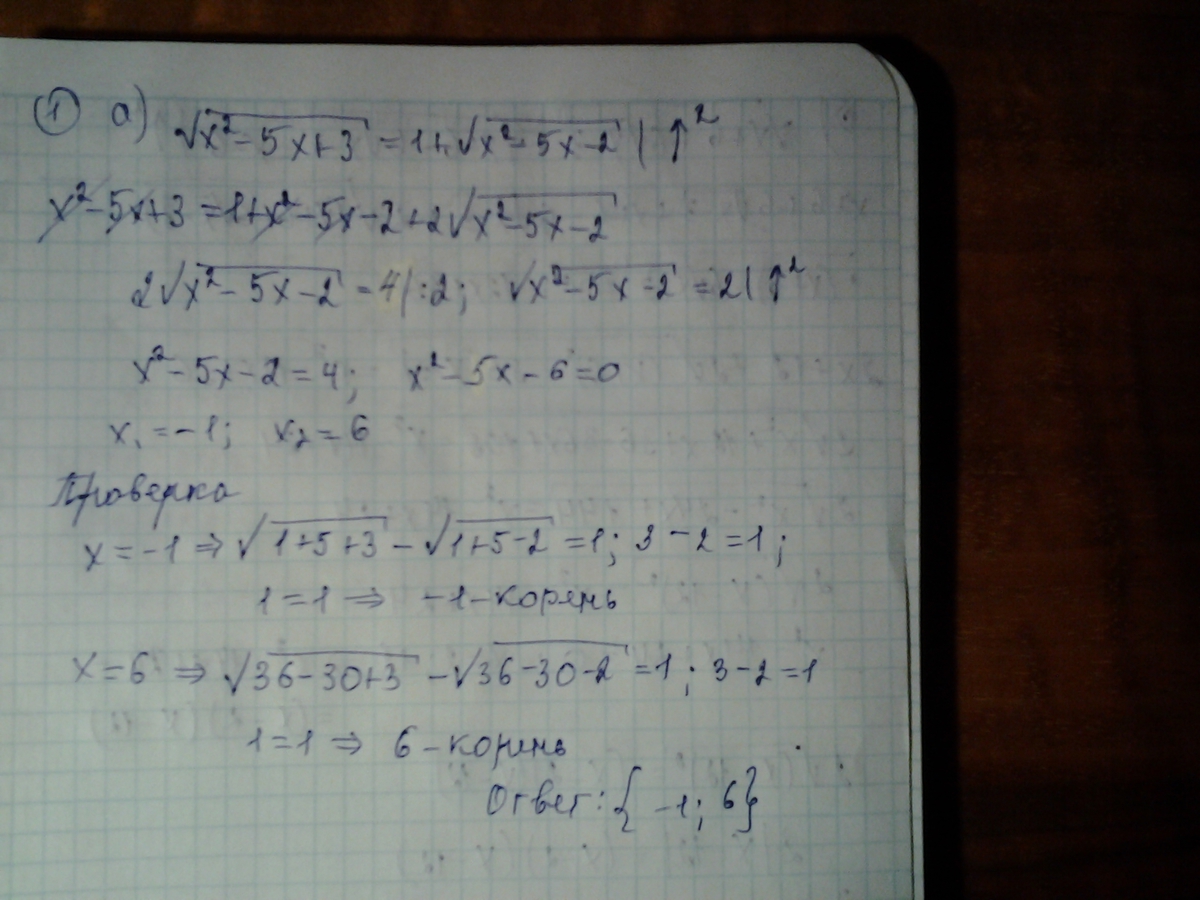 ① а) √(x² - 5x + 3) = 1 + √(x² - 5x - 2) | ↑²
x² - 5x + 3 = 1 + x² - 5x - 2 + 2√(x² - 5x - 2)
2√(x² - 5x - 2) = 4 | :2; √(x² - 5x - 2) = 2 | ↑²
x² - 5x - 2 = 4; x² - 5x - 6 = 0
x₁ = -1; x₂ = 6
Проверка
x = -1 ⇒ √(1+5+3) - √(1+5-2) = 1; 3 - 2 = 1;
1 = 1 ⇒ -1 - корень
x = 6 ⇒ √(36-30+3) - √(36-30-2) = 1; 3 - 2 = 1
1 = 1 ⇒ 6 - корень
Ответ: {-1; 6}